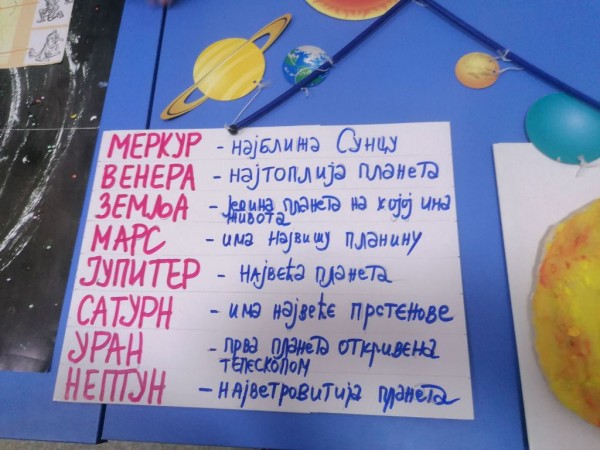 МЕРКУР - најближа Сунцу
ВЕНЕРА - најтоплија планета
ЗЕМЉА - једина планета на којој има
живота
МАРС - има највишу планину
ЈУПИТЕР - највећа планета
САТУРН - има највеће прстенове
УРАН - прва планета откривена
телескопом
НЕПТУН - најветровитија планета